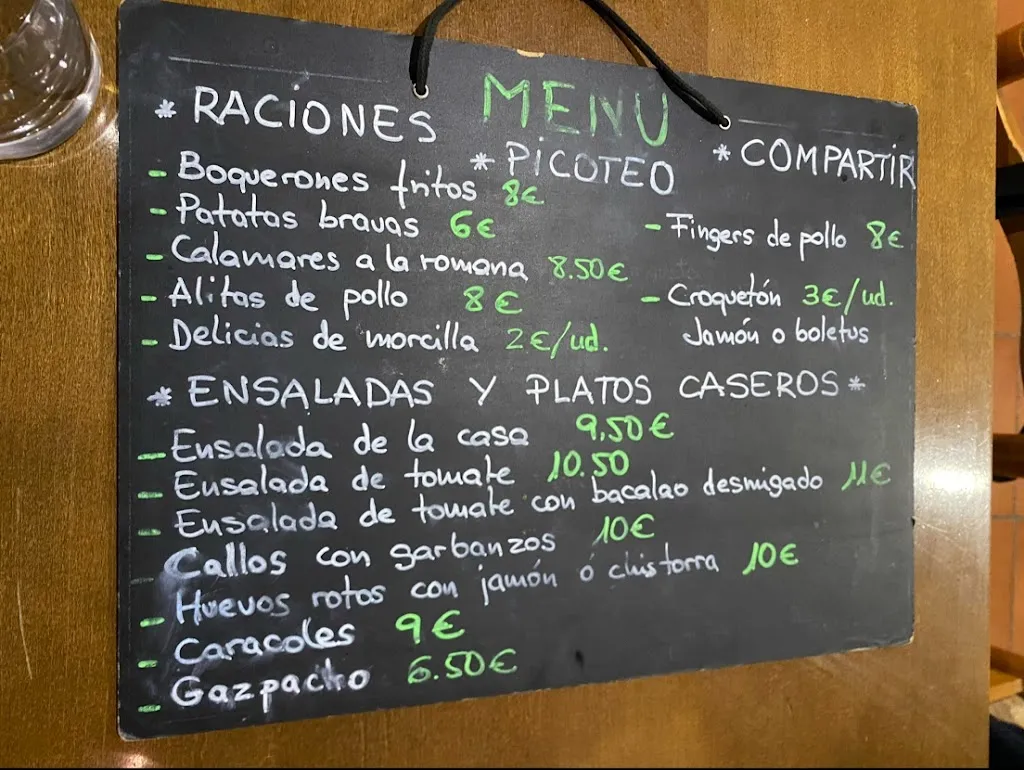 MENU
* RACIONES * PICOTEO * COMPARTIR
- Boquerones fritos 8€
- Patatas bravas 6€
- Calamares a la romana 8.50€
- Alitas de pollo 8€
- Delicias de morcilla 2€/ud.
- Fingers de pollo 8€
- Croquetón 3€/ud.
Jamón o boletus
* ENSALADAS Y PLATOS CASEROS *
- Ensalada de la casa 9,50€
- Ensalada de tomate 10.50
- Ensalada de tomate con bacalao desmigado 11€
Callos con garbanzos 10€
- Huevos rotos con jamón ó chistorra 10€
- Caracoles 9€
- Gazpacho 6.50€